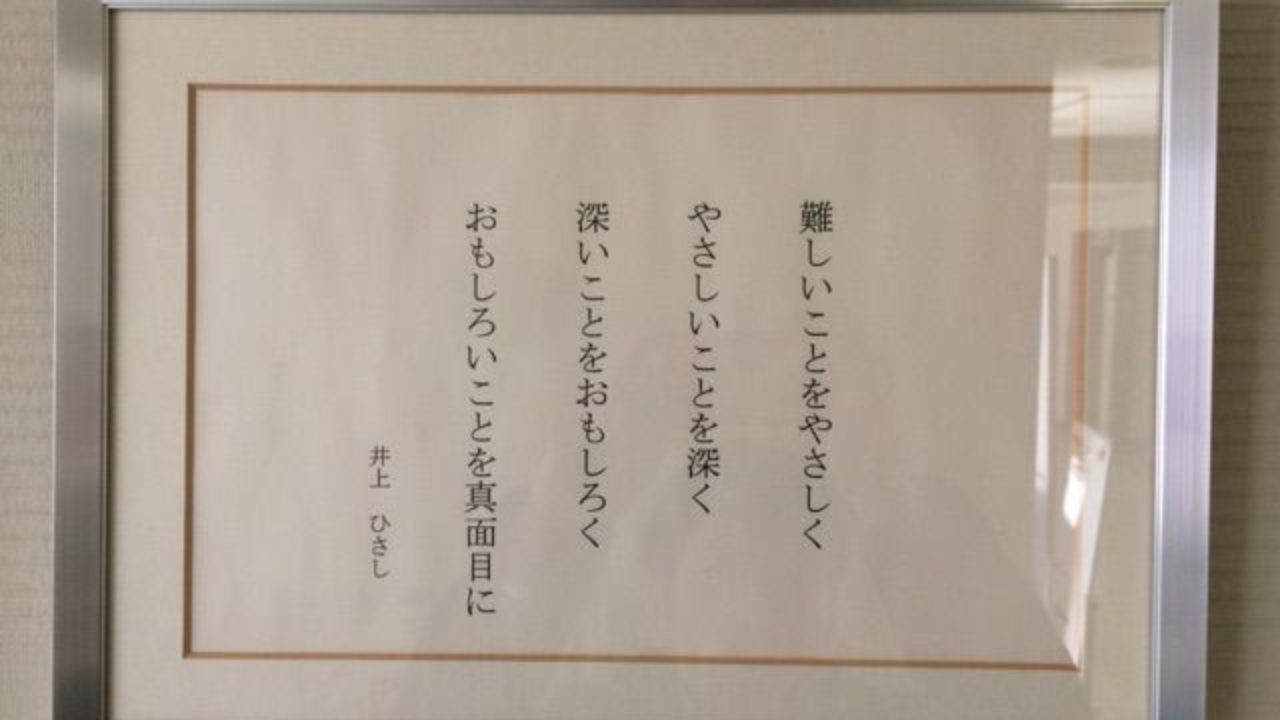 難しいことをやさしく
やさしいことを深く
深いことをおもしろく
おもしろいことを真面目に
井上　ひさし